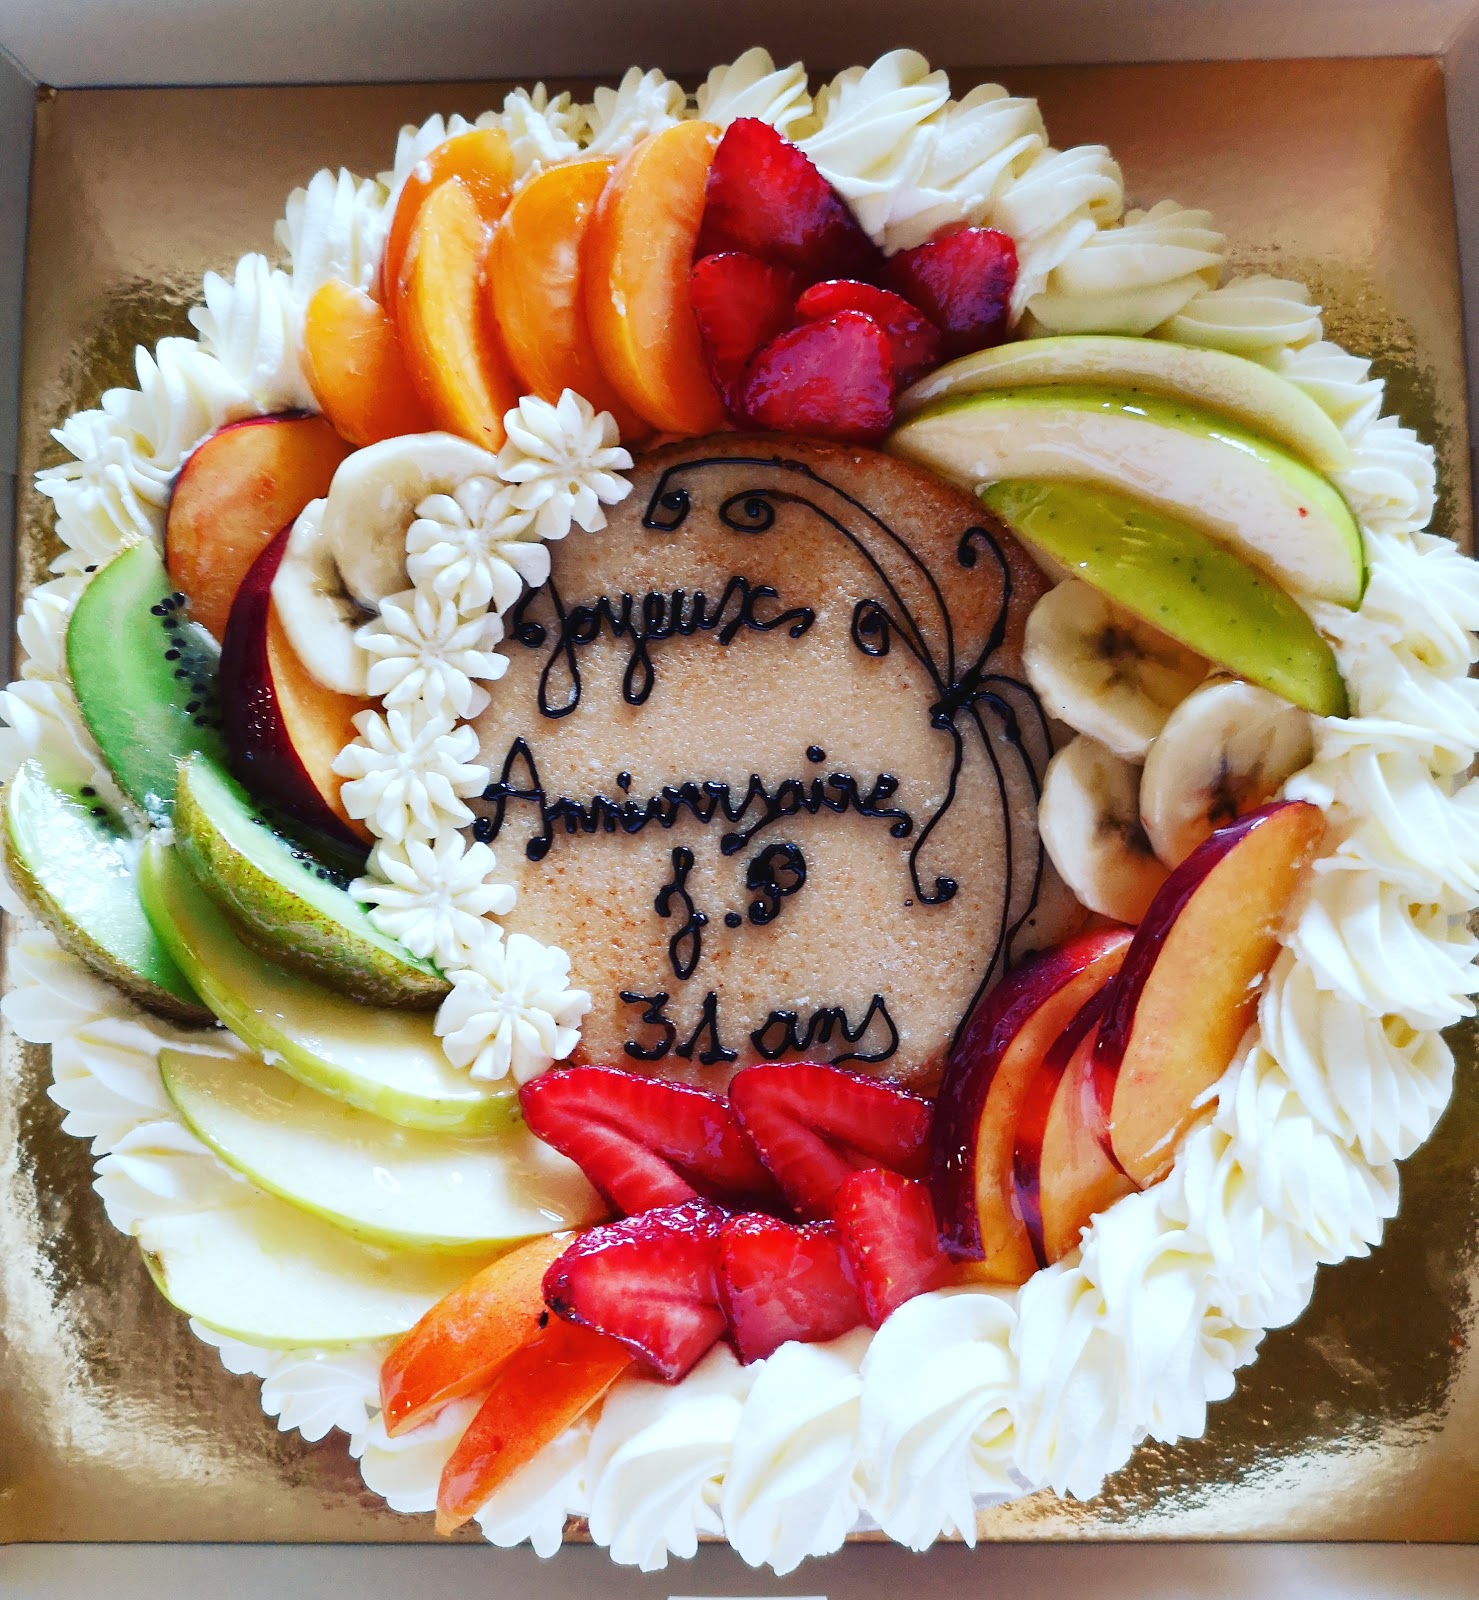 Joyeux
Anniversaire
J.P
31 ans